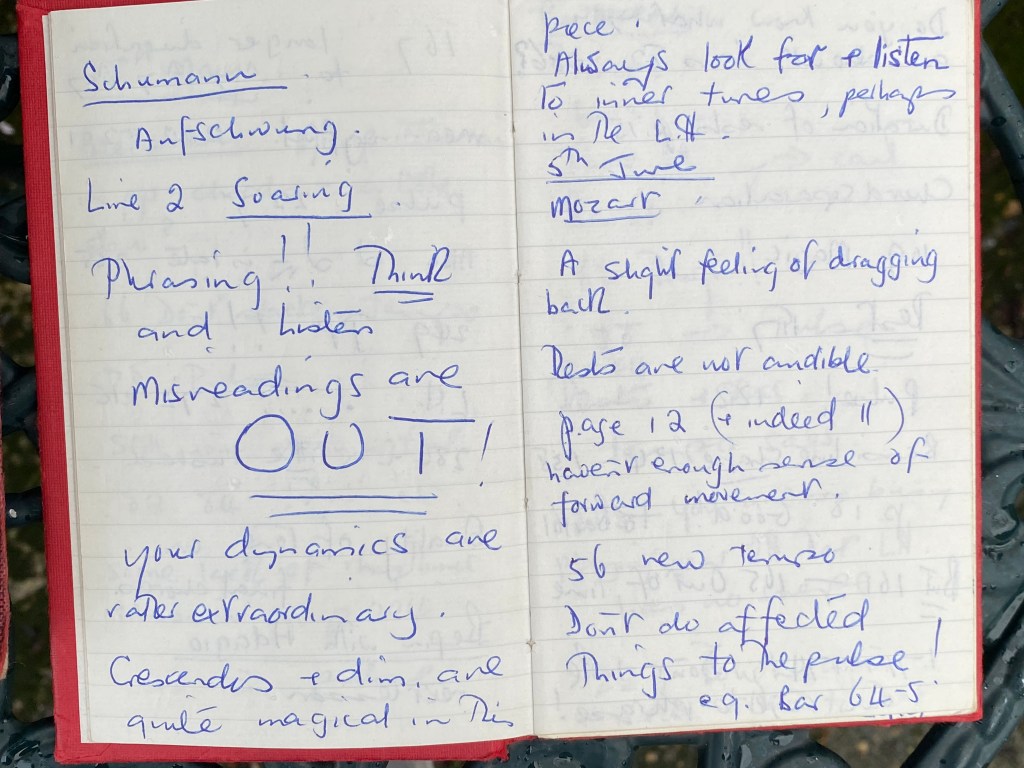 Schumann
Aufschwung.
Line 2 Soaring.
Phrasing!! Think
and Listen
Misreadings are
OUT!
your dynamics are
rather extraordinary.
Crescendos + dim. are
quite magical in this
piece.
Always look for + listen
to inner tunes, perhaps
in the L.H.
5th June
Mozart
A slight feeling of dragging
back.
Rests are not audible.
page 12 (+ indeed 11)
haven't enough sense of
forward movement.
56 new tempo
Don't do affected
Things to the pulse!
eg. Bar 64-5